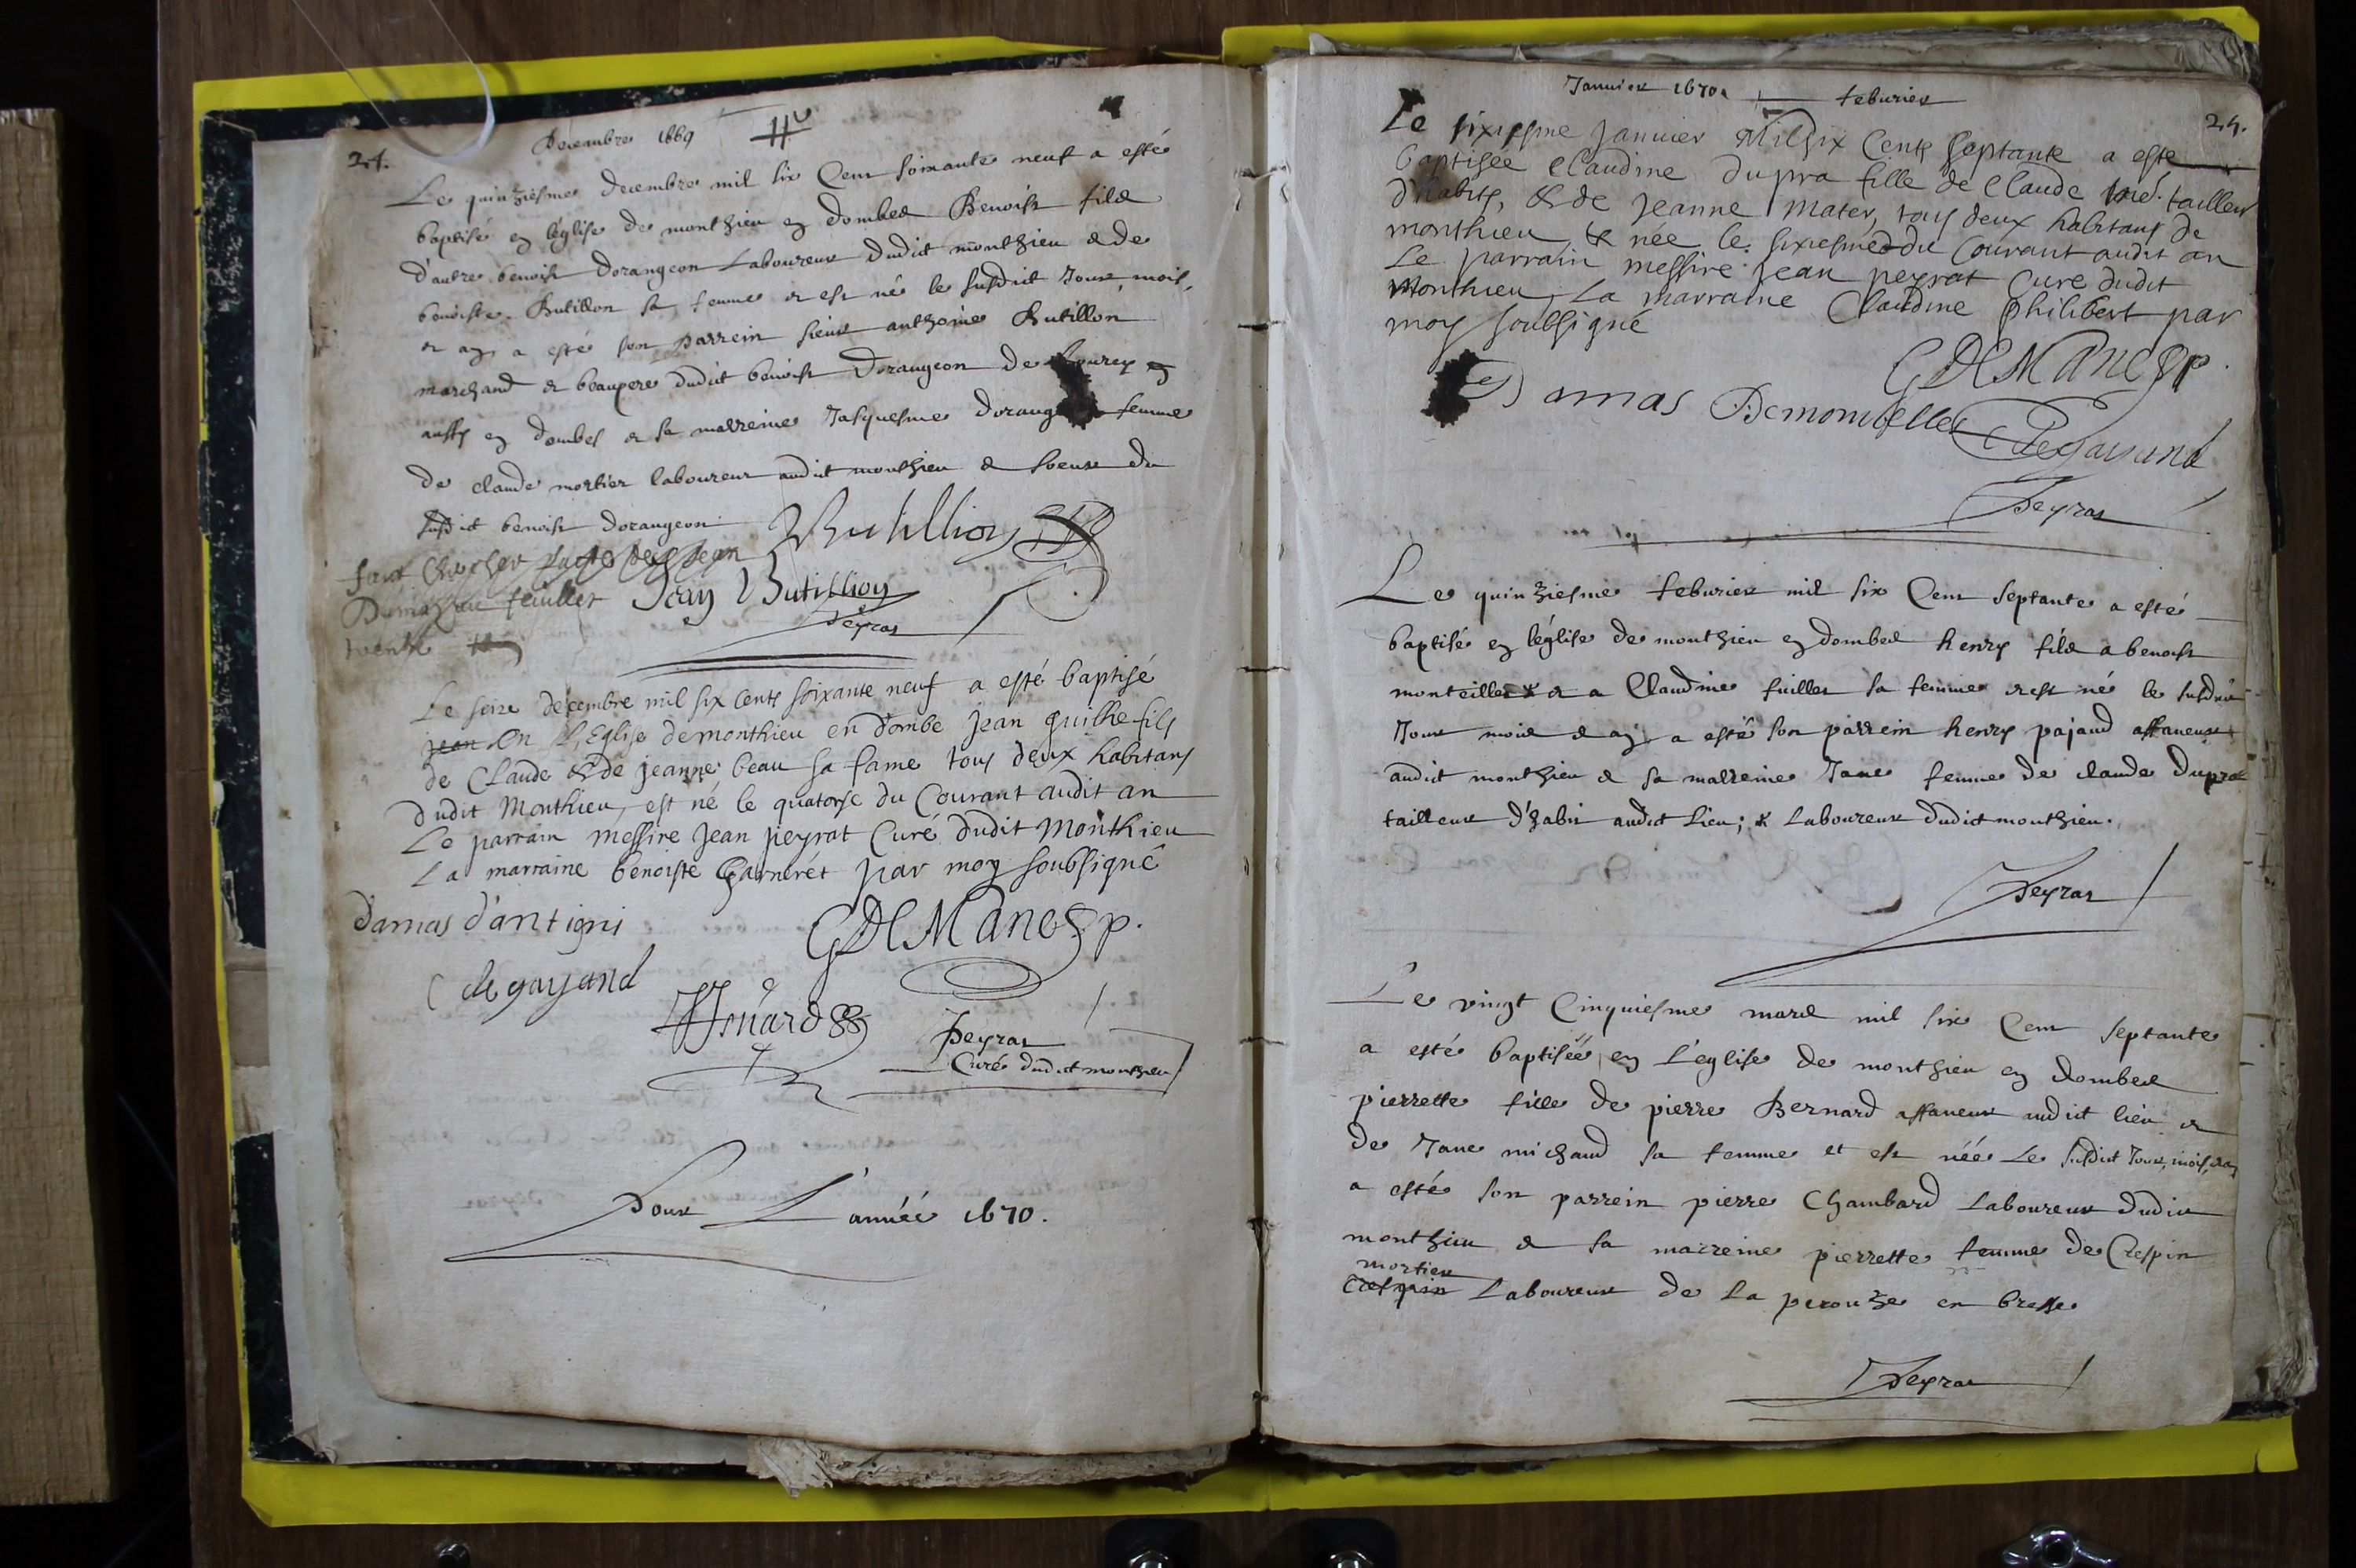 24.
Decembre 1669
Le quinziesme decembre mil six Cent soixante neuf a esté
baptisé en léglise de monthieu en dombes Benoist fils
d'autre benoist Dorangeon Laboureur dudict monthieu & de
benoiste Butillon sa femme & est né le susdict Jour, mois,
& an, a esté son parrein sieur anthoine Butillon
marchand & beaupere dudict benoist Dorangeon de
aussy en dombes & sa marreine Jasquesme femme
de claude mortier laboureur audict monthieu & soeur du
susdict benoist dorangeon
Butillion
faut Chercher
feuillet
Jean Butillion
Peyrat
Le seize décembre mil six cents soixante neuf a esté baptisé
jean en L'Eglise de monthieu en dombe jean guilhe fils
de Claude & de jeanne beau sa fame tous deux habitans
dudit Monthieu, est né le quatorse du Courant audit an
Le parrain messire jean peyrat Curé dudit Monthieu
La marraine benoiste Garnérét par moy soubsigné
damas d'antigni
GDEManesp.
C de gayand
Peyrat
Curé dudict monthieu
Pour L'année 1670.
Januier 1670. feburier
24.
Le sixiesme januier Mil six Cents septante a este
baptisée Claudine dupra fille de Claude tailleur
d'habits, & de jeanne Mater, tous deux habitans de
monthieu & née le sixiesme du Courant audit an
Le parrain messire jean peyrat Cure dudit
Monthieu, La marraine Claudine philibert par
moy soubsigné
GDEManesp.
Damas
Peyrat
Le quinziesme feburier mil six Cent septante a esté
baptisé en léglise de monthieu en dombes henry fils a benoist
monteiller & a Claudine fuillet sa femme & est né le susdict
Jour mois & an, a esté son parrein henry pajand affaneur
audict monthieu & sa marreine Jane femme de claude Dupra
tailleur d'habit audict Lieu; * Laboureur dudict monthieu.
Peyrat
Le vingt Cinquiesme mars mil six Cent septante
a esté baptiséé en L'eglise de monthieu en dombes
pierrette fille de pierre Bernard affaneur audict lieu &
de Jane michaud sa femme et est néé Le susdict Jour, mois, & an
a esté son parrein pierre Chambard Laboureur dudict
monthieu & sa marreine pierrette femme de Crespin
mortier
Crespin Laboureur de La perouze en bresse
Peyrat